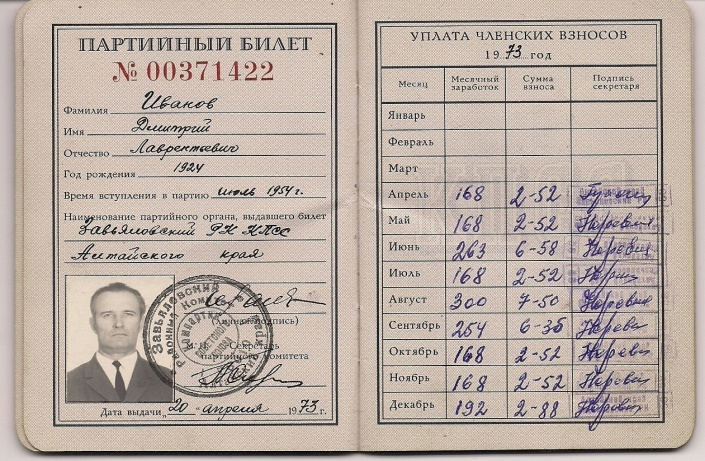 ПАРТИЙНЫЙ БИЛЕТ
№ 00371422
Фамилия Иванов
Имя Дмитрий
Отчество Лаврентьевич
Год рождения 1924
Время вступления в партию июль 1954 г.
Наименование партийного органа, выдавшего билет
Завьяловский РК КПСС
Алтайского края
(личная подпись)
М. П. Секретарь
партийного комитета
Дата выдачи „20" апреля 1973 г.
Завьяловский
Районный Комитет
УПЛАТА ЧЛЕНСКИХ ВЗНОСОВ
1973 год
Месяц Месячный заработок Сумма взноса Подпись секретаря
Январь
Февраль
Март
Апрель 168 2-52
Май 168 2-52
Июнь 263 6-58
Июль 168 2-52
Август 300 7-50
Сентябрь 254 6-35
Октябрь 168 2-52
Ноябрь 168 2-52
Декабрь 192 2-88